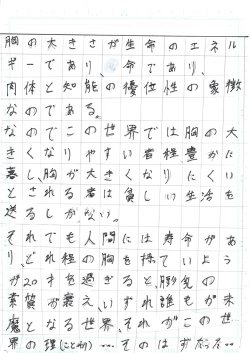 胸の大きさが生命のエネル
ギーであり、命であり、
肉体と知能の優位性の象徴
なのである。
なのでこの世界では胸の大
きくなりやすい者程豊かに
暮し、胸が大きくなりにくい
とされる者は貧しい生活を
送るしかない。
それでも人間には寿命があ
り、どれ程の胸を持ていよう
が20才を過ぎると、胸の
素質が衰え、いずれ誰もが末
魔となる世界、それがこの世
界の理(ことわり)……そのはずだった…